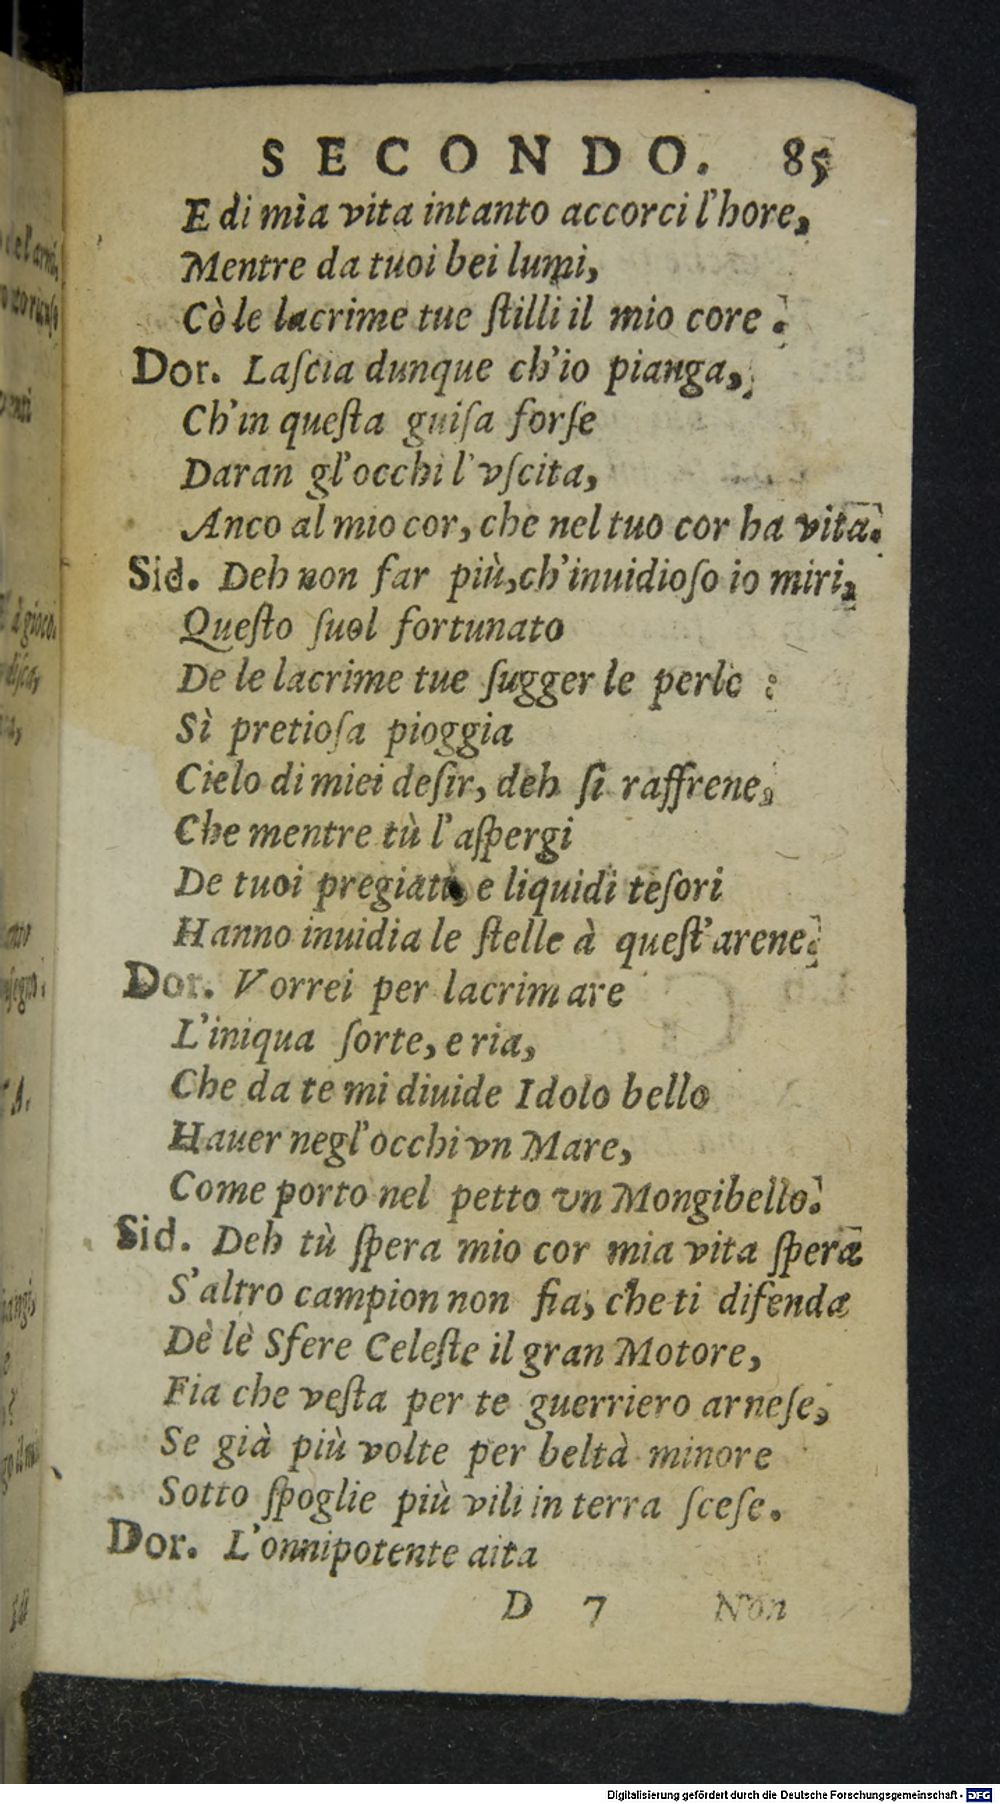 SECONDO. 85
E di mìa vita intanto accorci l'hore,
Mentre da tuoi bei lumi,
Cò le lacrime tue ſtilli il mio core.
Dor. Laſcia dunque ch'io pianga,
Ch'in queſta guiſa forſe
Daran gl'occhi l'vſcita,
Anco al mio cor, che nel tuo cor ha vita.
Sid. Deh non far più, ch'inuidioſo io miri,
Queſto ſuol fortunato
De le lacrime tue ſugger le perle:
Sì pretioſa pioggia
Cielo di miei deſir, deh ſi raffrene,
Che mentre tù l'aſpergi
De tuoi pregiati, e liquidi teſori
Hanno inuidia le ſtelle à queſt'arene.
Dor. Vorrei per lacrimare
L'iniqua ſorte, e ria,
Che da te mi diuide Idolo bello
Hauer negl'occhi vn Mare,
Come porto nel petto vn Mongibello.
Sid. Deh tù ſpera mio cor mia vita ſpera
S'altro campion non fia, che ti difenda
Dè lè Sfere Celeſte il gran Motore,
Fia che veſta per te guerriero arneſe,
Se già più volte per beltà minore
Sotto ſpoglie più vili in terra ſceſe.
Dor. L'onnipotente aita
D 7 Non
Digitalisierung gefördert durch die Deutsche Forschungsgemeinschaft - DFG